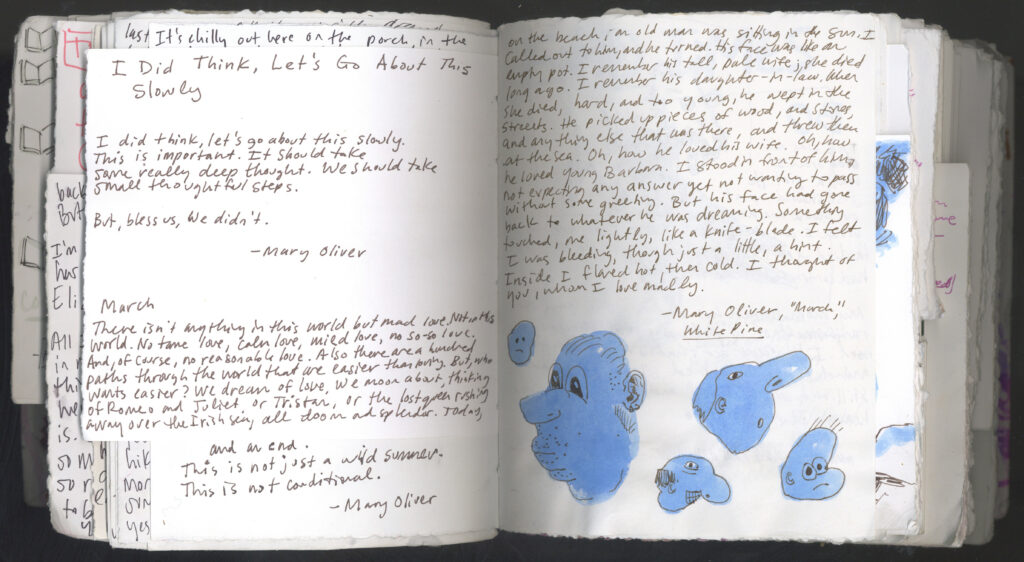 last It's chilly out here on the porch, in the
I Did Think, Let's Go About This
Slowly
I did think, let's go about this slowly.
This is important. It should take
some really deep thought. We should take
small thoughtful steps.
But, bless us, we didn't.
—Mary Oliver
March
There isn't anything in this world but mad love. Not in this
world. No tame love, calm love, mild love, no so-so love.
And, of course, no reasonable love. Also there are a hundred
paths through the world that are easier than loving. But, who
wants easier? We dream of love, we moon about, thinking
of Romeo and Juliet, or Tristan, or the lost queen rushing
away over the Irish sea, all doom and splendor. Today,
and an end.
This is not just a wild summer.
This is not conditional.
—Mary Oliver
back
But
I'm
has
Eli
All
in
thi
he
is.
so m
so r
to b
y
hik
mor
sm
yes
on the beach, an old man was sitting in the sun. I
called out to him, and he turned. His face was like an
empty pot. I remember his tall, pale wife; she died
long ago. I remember his daughter-in-law. When
she died, hard, and too young, he wept in the
streets. He picked up pieces of wood, and stones,
and anything else that was there, and threw them
at the sea. Oh, how he loved his wife. Oh, how
he loved young Barbara. I stood in front of him,
not expecting any answer yet not wanting to pass
without some greeting. But his face had gone
back to whatever he was dreaming. Something
touched me, lightly, like a knife-blade. I felt
I was bleeding, though just a little, a hint.
Inside I flared hot, then cold. I thought of
you, whom I love, madly.
—Mary Oliver, "March",
White Pine